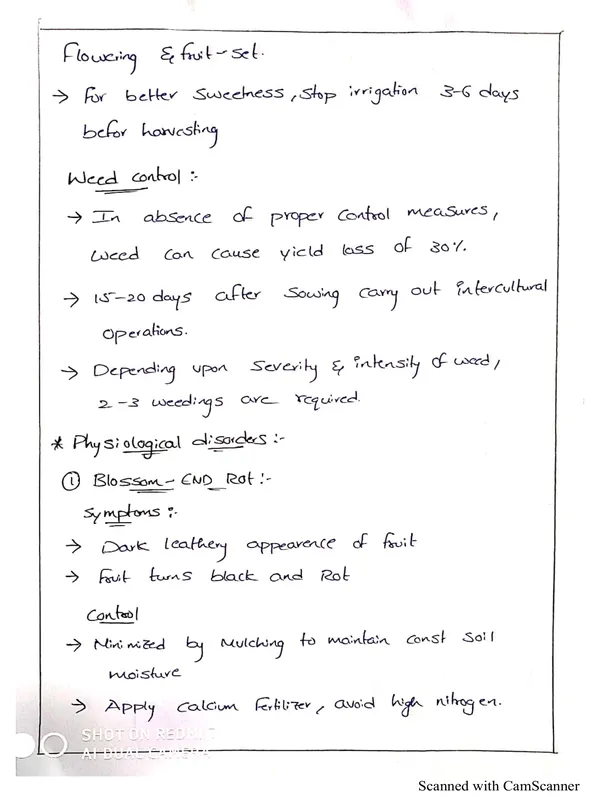 Flowering & fruit-set.
→ For better Sweetness, Stop irrigation 3-6 days
befor harvesting
Weed control :-
→ In absence of proper Control measures,
weed can cause yield loss of 30%.
→ 15-20 days after Sowing carry out intercultural
Operations.
→ Depending upon Severity & intensity of weed,
2-3 weedings are required.
* Physiological disorders :-
① Blossom-END Rot :-
Symptoms :-
→ Dark leathery appearence of fruit
→ Fruit turns black and Rot
Control
→ Minimized by Mulching to maintain const Soil
moisture
→ Apply calcium Fertilizer, avoid high nitrogen.
SHOT ON REDMI 7
AI DUAL CAMERA
Scanned with CamScanner